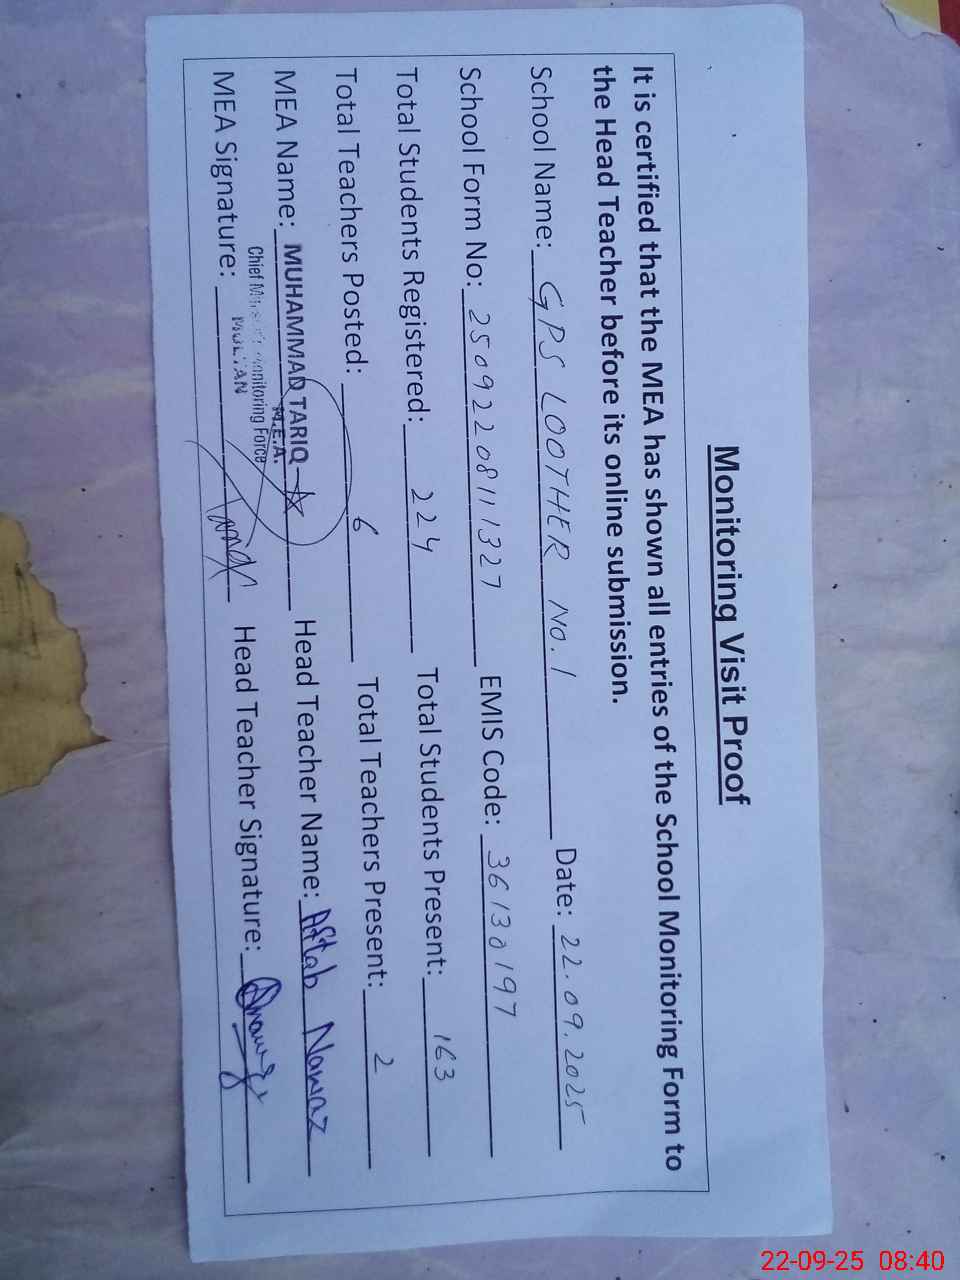 Monitoring Visit Proof
It is certified that the MEA has shown all entries of the School Monitoring Form to
the Head Teacher before its online submission.
School Name: GPS LOOTHER No.1 Date: 22.09.2025
School Form No: 25092208111327 EMIS Code: 36130197
Total Students Registered: 224 Total Students Present: 163
Total Teachers Posted: 6 Total Teachers Present: 2
MEA Name: MUHAMMAD TARIQ Head Teacher Name: Aftab Nawaz
M.E.A.
Chief Monitoring Force
MEA Signature: MULTAN Head Teacher Signature:
22-09-25 08:40